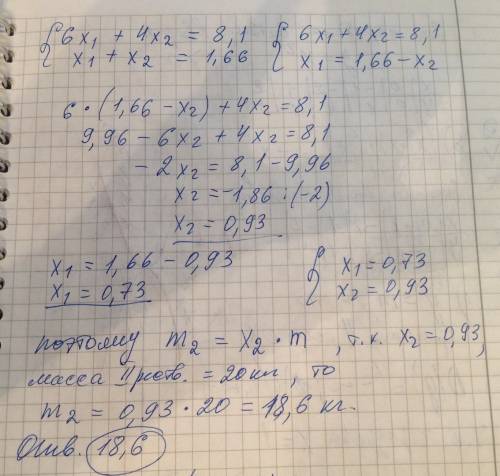 { 6x₁ + 4x₂ = 8,1    { 6x₁+4x₂=8,1
x₁ + x₂ = 1,66    x₁ = 1,66-x₂
6·(1,66-x₂)+4x₂=8,1
9,96-6x₂+4x₂=8,1
-2x₂=8,1-9,96
x₂=-1,86:(-2)
x₂=0,93
x₁=1,66-0,93    { x₁=0,73
x₁=0,73    x₂=0,93
поэтому m₂ = x₂·m, т.к. x₂=0,93,
масса II раств. = 20кг, то
m₂ = 0,93·20=18,6 кг.
Отв. 18,6